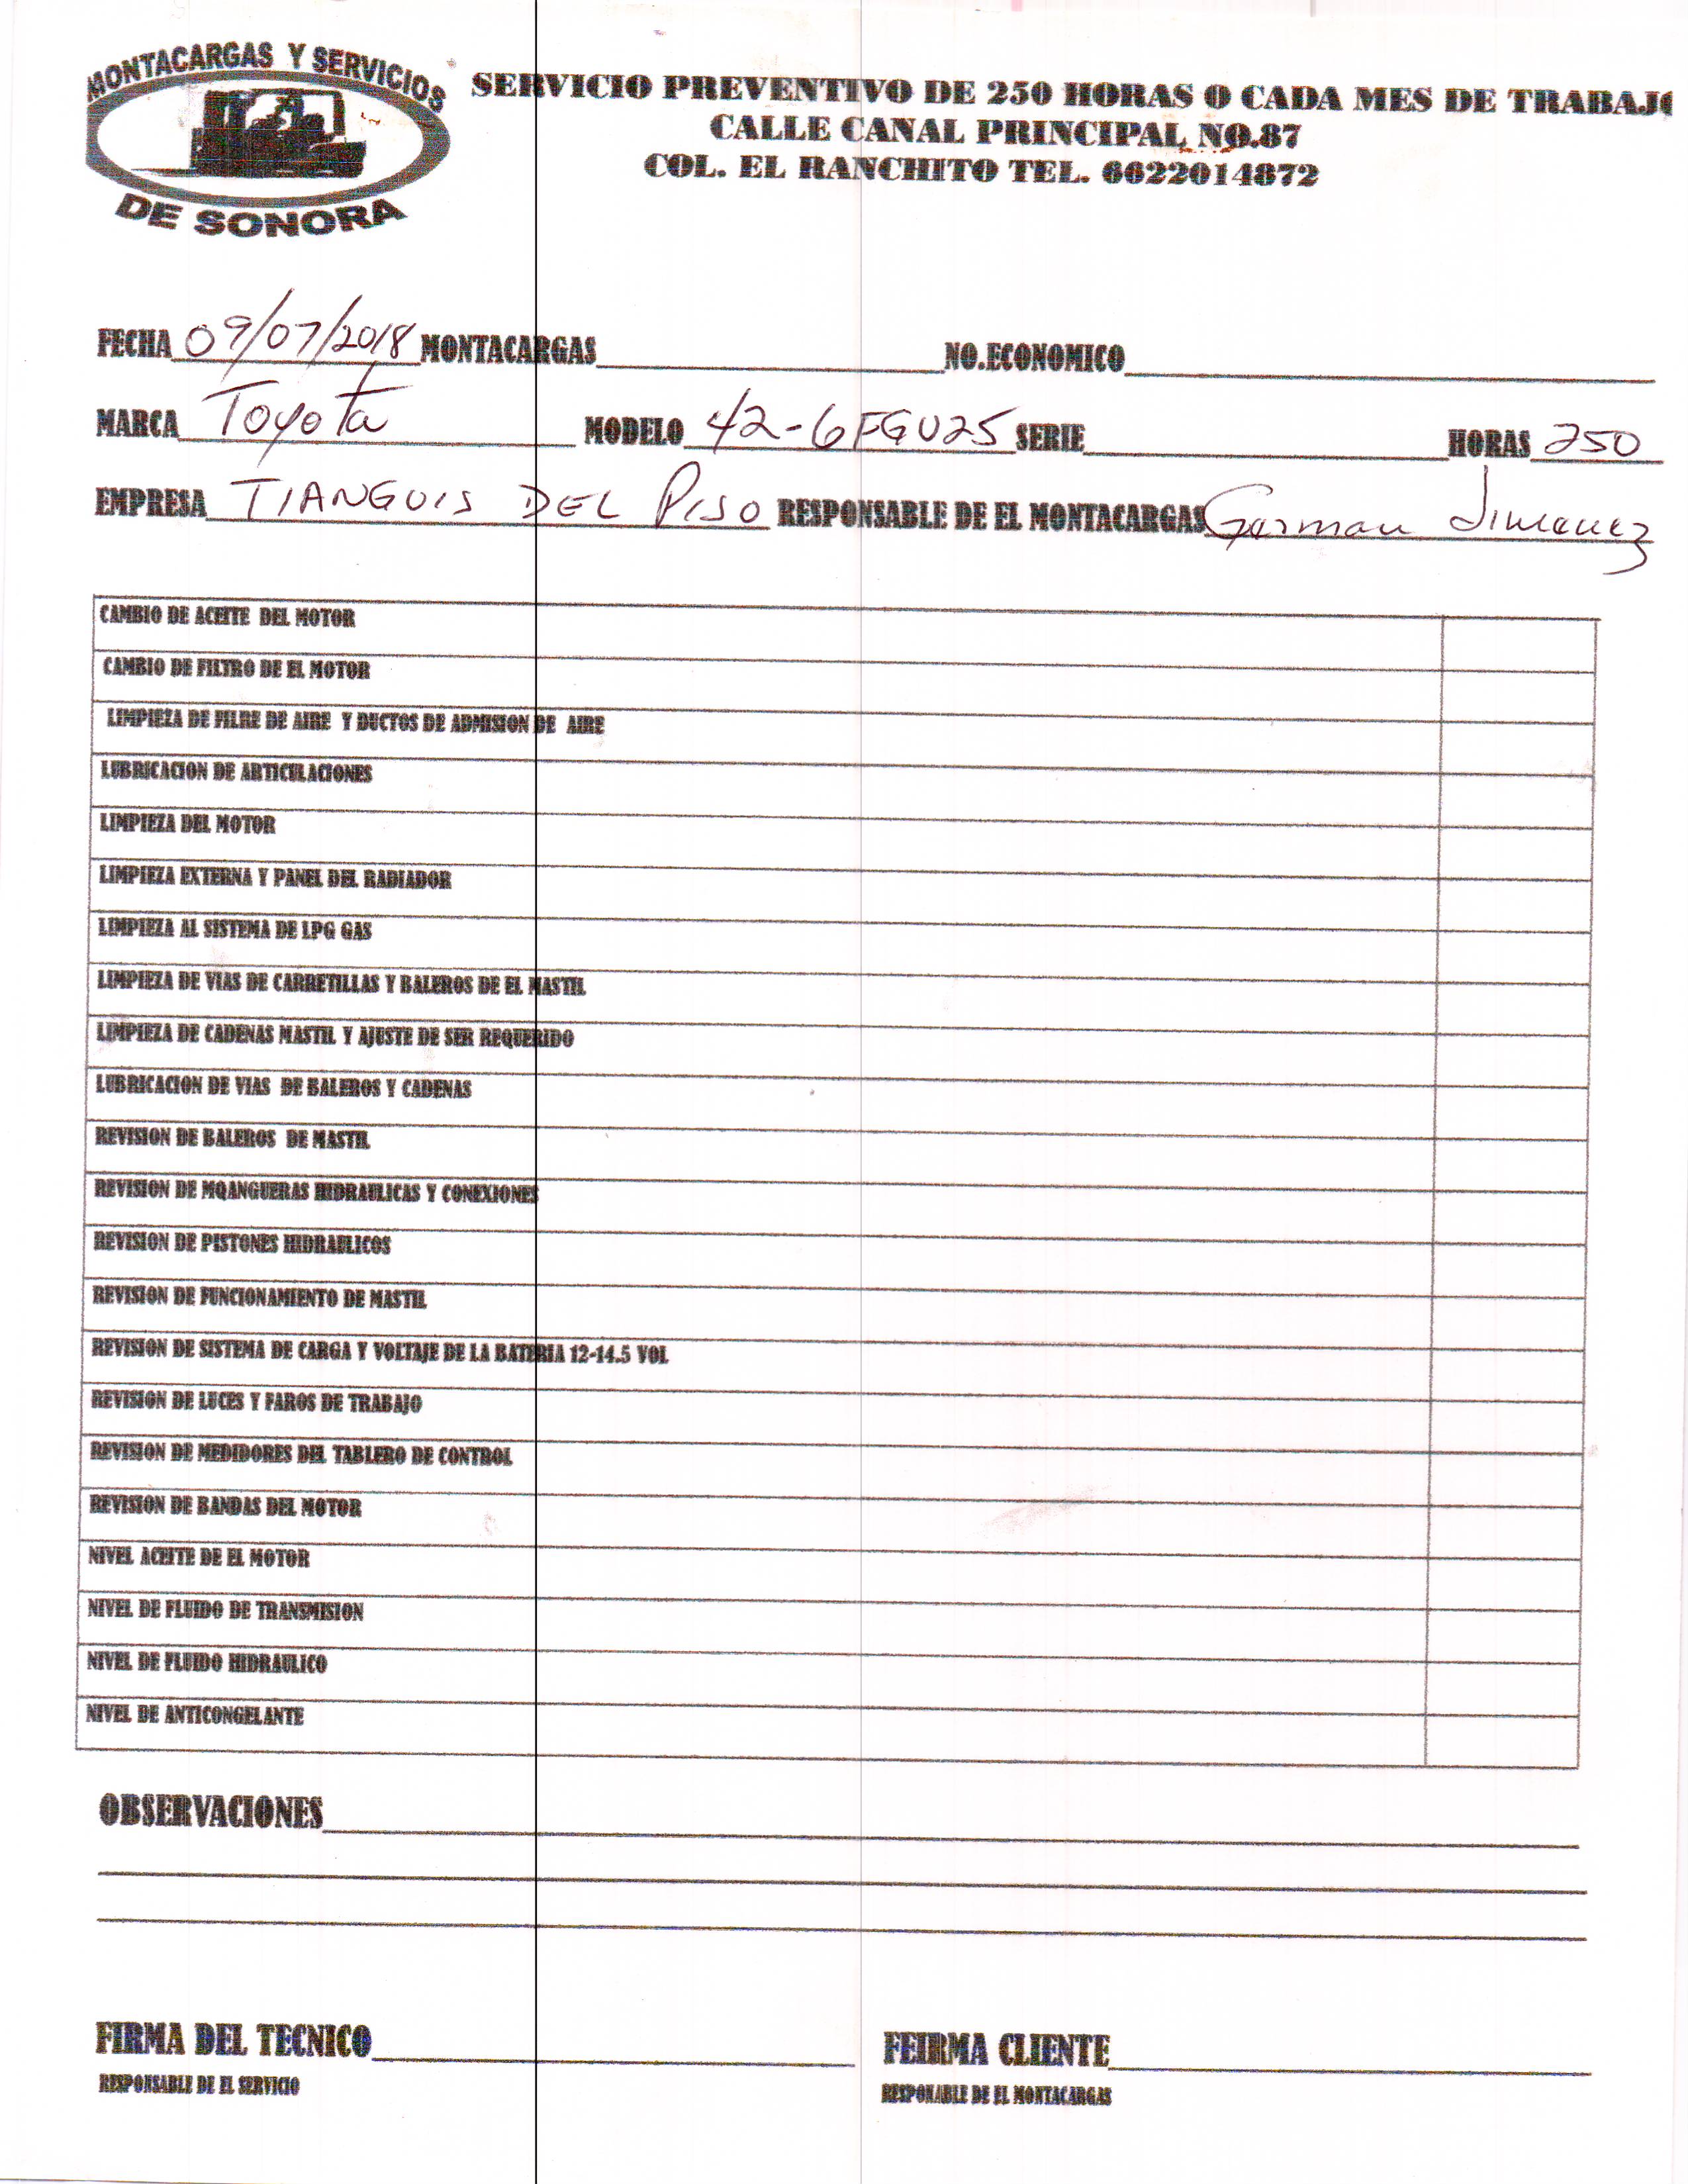 MONTACARGAS Y SERVICIOS
DE SONORA
SERVICIO PREVENTIVO DE 250 HORAS O CADA MES DE TRABAJO
CALLE CANAL PRINCIPAL NO.87
COL. EL RANCHITO TEL. 6622014872
FECHA 09/07/2018 MONTACARGAS NO.ECONOMICO
MARCA Toyota MODELO 42-6FGU25 SERIE HORAS 250
EMPRESA TIANGUIS DEL PISO RESPONSABLE DE EL MONTACARGAS German Jimenez
CAMBIO DE ACEITE DEL MOTOR
CAMBIO DE FILTRO DE EL MOTOR
LIMPIEZA DE FILRE DE AIRE Y DUCTOS DE ADMISION DE AIRE
LUBRICACION DE ARTICULACIONES
LIMPIEZA DEL MOTOR
LIMPIEZA EXTERNA Y PANEL DEL RADIADOR
LIMPIEZA AL SISTEMA DE LPG GAS
LIMPIEZA DE VIAS DE CARRETILLAS Y BALEROS DE EL MASTIL
LIMPIEZA DE CADENAS MASTIL Y AJUSTE DE SER REQUERIDO
LUBRICACION DE VIAS DE BALEROS Y CADENAS
REVISION DE BALEROS DE MASTIL
REVISION DE MQANGUERAS HIDRAULICAS Y CONEXIONES
REVISION DE PISTONES HIDRAULICOS
REVISION DE FUNCIONAMIENTO DE MASTIL
REVISION DE SISTEMA DE CARGA Y VOLTAJE DE LA BATERIA 12-14.5 VOL
REVISION DE LUCES Y FAROS DE TRABAJO
REVISION DE MEDIDORES DEL TABLERO DE CONTROL
REVISION DE BANDAS DEL MOTOR
NIVEL ACEITE DE EL MOTOR
NIVEL DE FLUIDO DE TRANSMISION
NIVEL DE FLUIDO HIDRAULICO
NIVEL DE ANTICONGELANTE
OBSERVACIONES
FIRMA DEL TECNICO FEIRMA CLIENTE
RESPONSABLE DE EL SERVICIO RESPONABLE DE EL MONTACARGAS